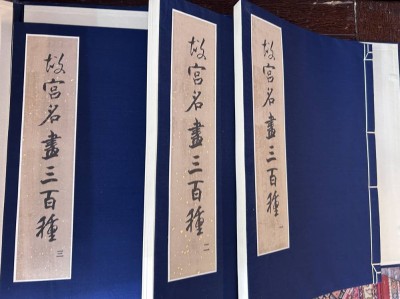 故宮名畫三百種 三
故宮名畫三百種 二
故宮名畫三百種 一